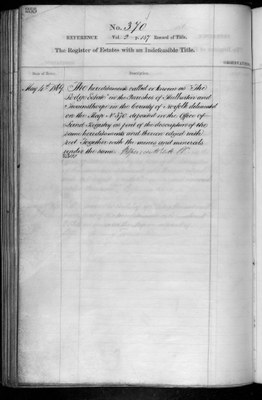 255
No. 370
REFERENCE Vol. 2 p. 157 Record of Title.
The Register of Estates with an Indefeasible Title.
OBSERVATIONS
Date of Entry. Description.
May 14th 1869 The hereditaments called or known as "The
Lodge Estate" in the Parishes of and
in the County of Norfolk delineated
on the Map No 370 deposited in the Office of
Land Registry as part of the description of the
same hereditaments and thereon edged with
red Together with the mines and minerals
under the same